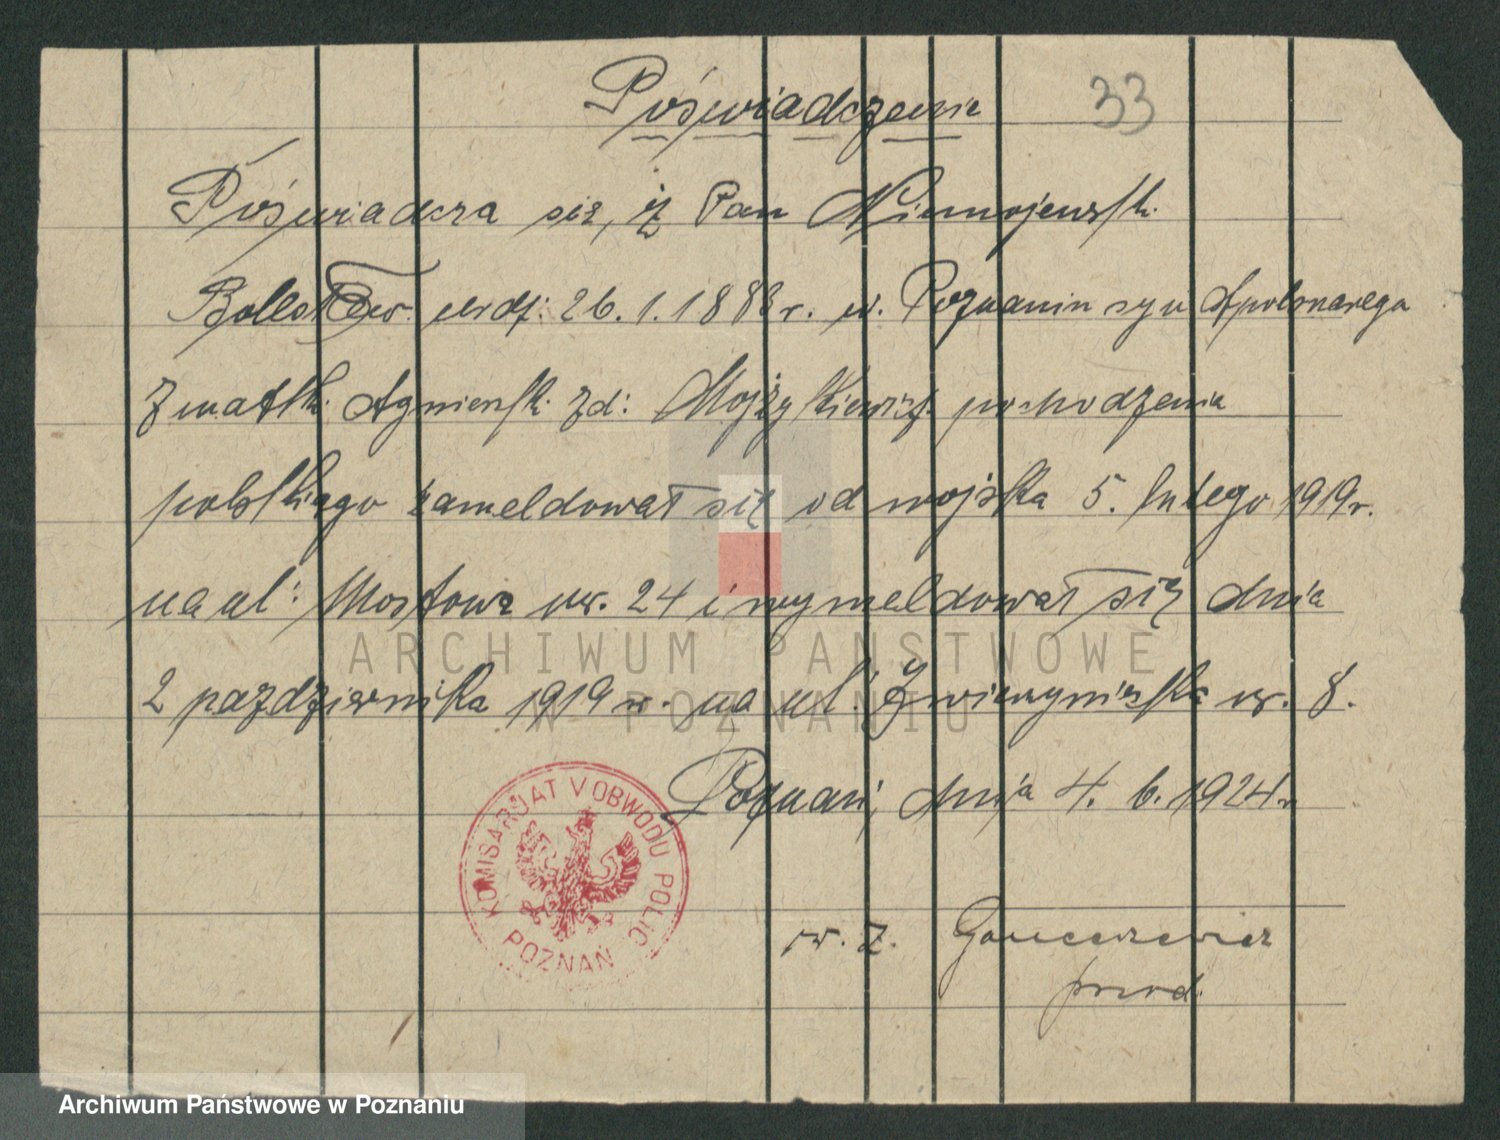 Poświadczenie
33
Poświadcza się, iż Pan Niemojewsk.
Bolesław. urdz: 26. 1. 1883 r. w. Poznaniu syn Apolonarego
z matk. Agnieszk. zd: Mojżykiewicz. pochodzenia
polskiego zameldował się od wojska 5. lutego 1919 r.
na ul: Mostowa nr. 24 i wymeldował się dnia
2 pazdziernika 1919 r. na ul: Zwierzyniecka nr. 8.
Poznań, dnia 4. 6. 1924 r
KOMISARJAT V OBWODU POLIC.
POZNAŃ
w. z.
przod.
ARCHIWUM PAŃSTWOWE
W POZNANIU
Archiwum Państwowe w Poznaniu